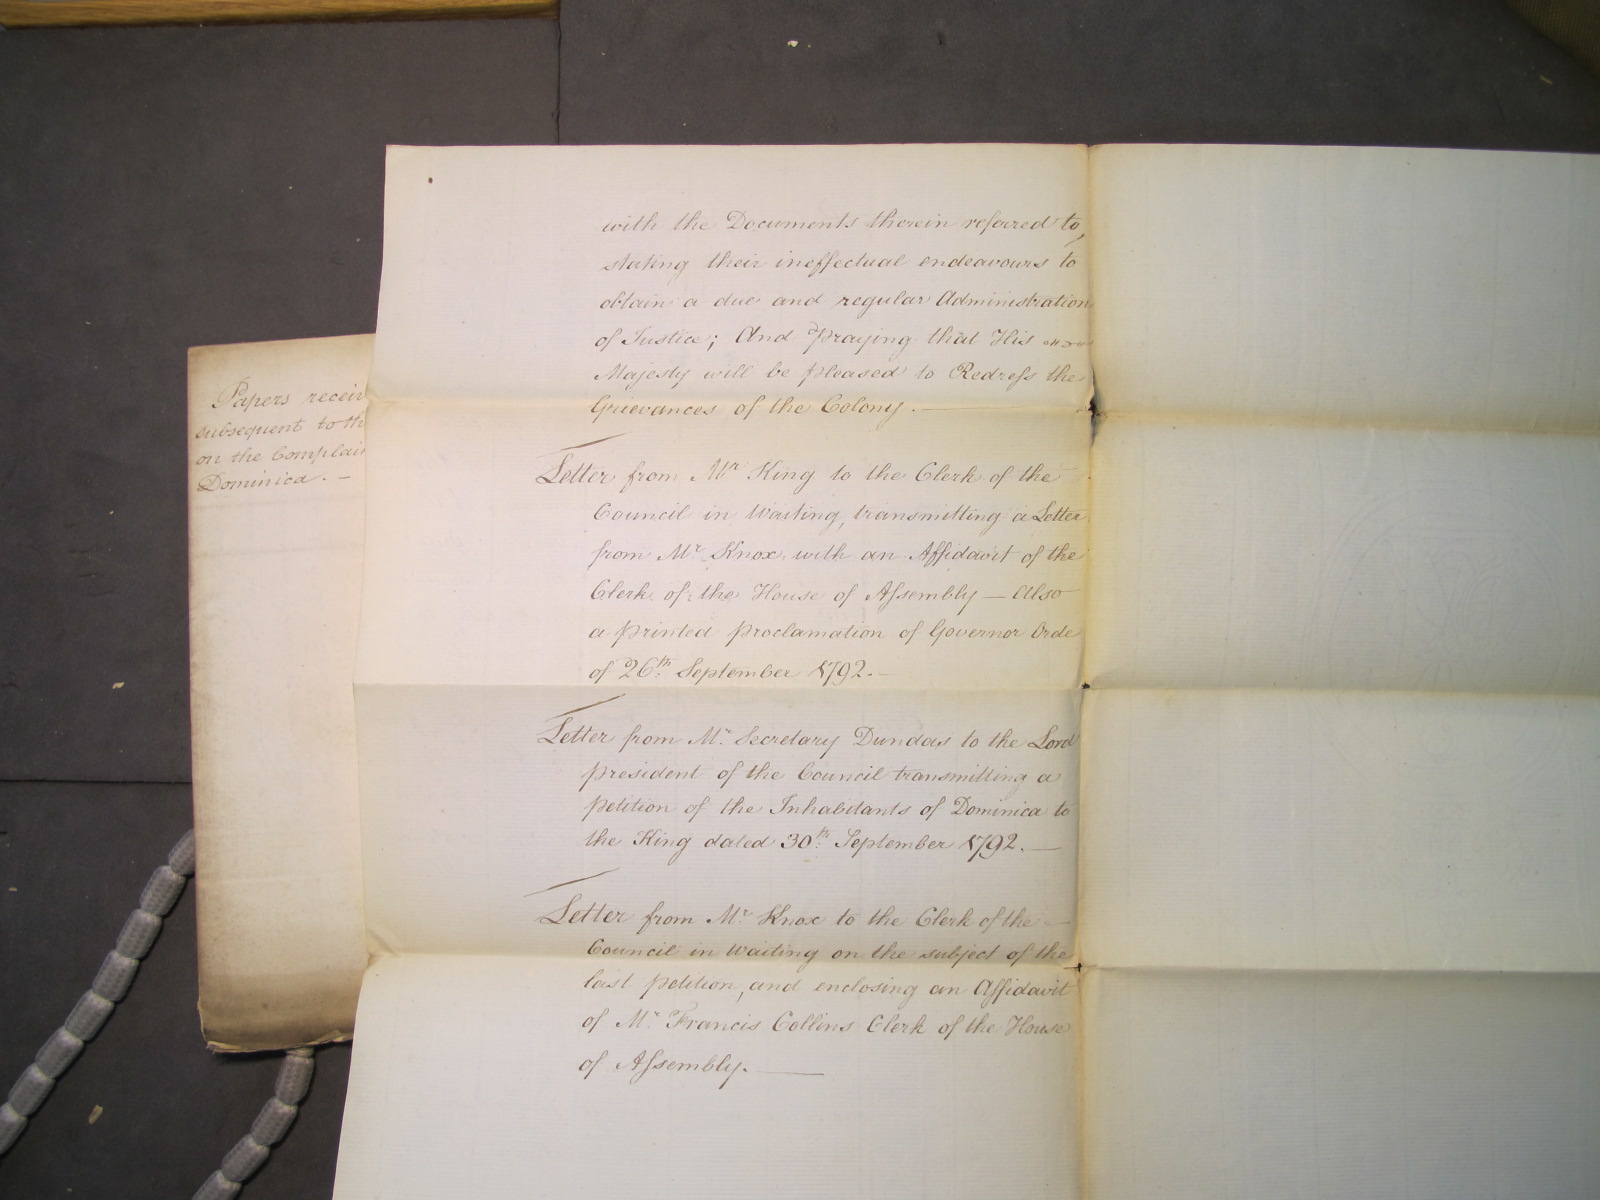 with the Documents therein referred to,
stating their ineffectual endeavours to
obtain a due and regular Administration
of Justice; And Praying that His
Majesty will be pleased to Redress the
Grievances of the Colony.—
Letter from Mr King to the Clerk of the
Council in Waiting, transmitting a Letter
from Mr. Knox with an Affidavit of the
Clerk of the House of Assembly — Also
a printed proclamation of Governor Orde
of 26th September 1792.—
Letter from Mr. Secretary Dundas to the Lord
president of the Council transmitting a
petition of the Inhabitants of Dominica to
the King dated 30th September 1792.—
Letter from Mr. Knox to the Clerk of the
Council in Waiting on the subject of the
last petition, and enclosing an Affidavit
of Mr. Francis Collins Clerk of the House
of Assembly.—
Papers receiv
subsequent to th
on the Complai
Dominica.—